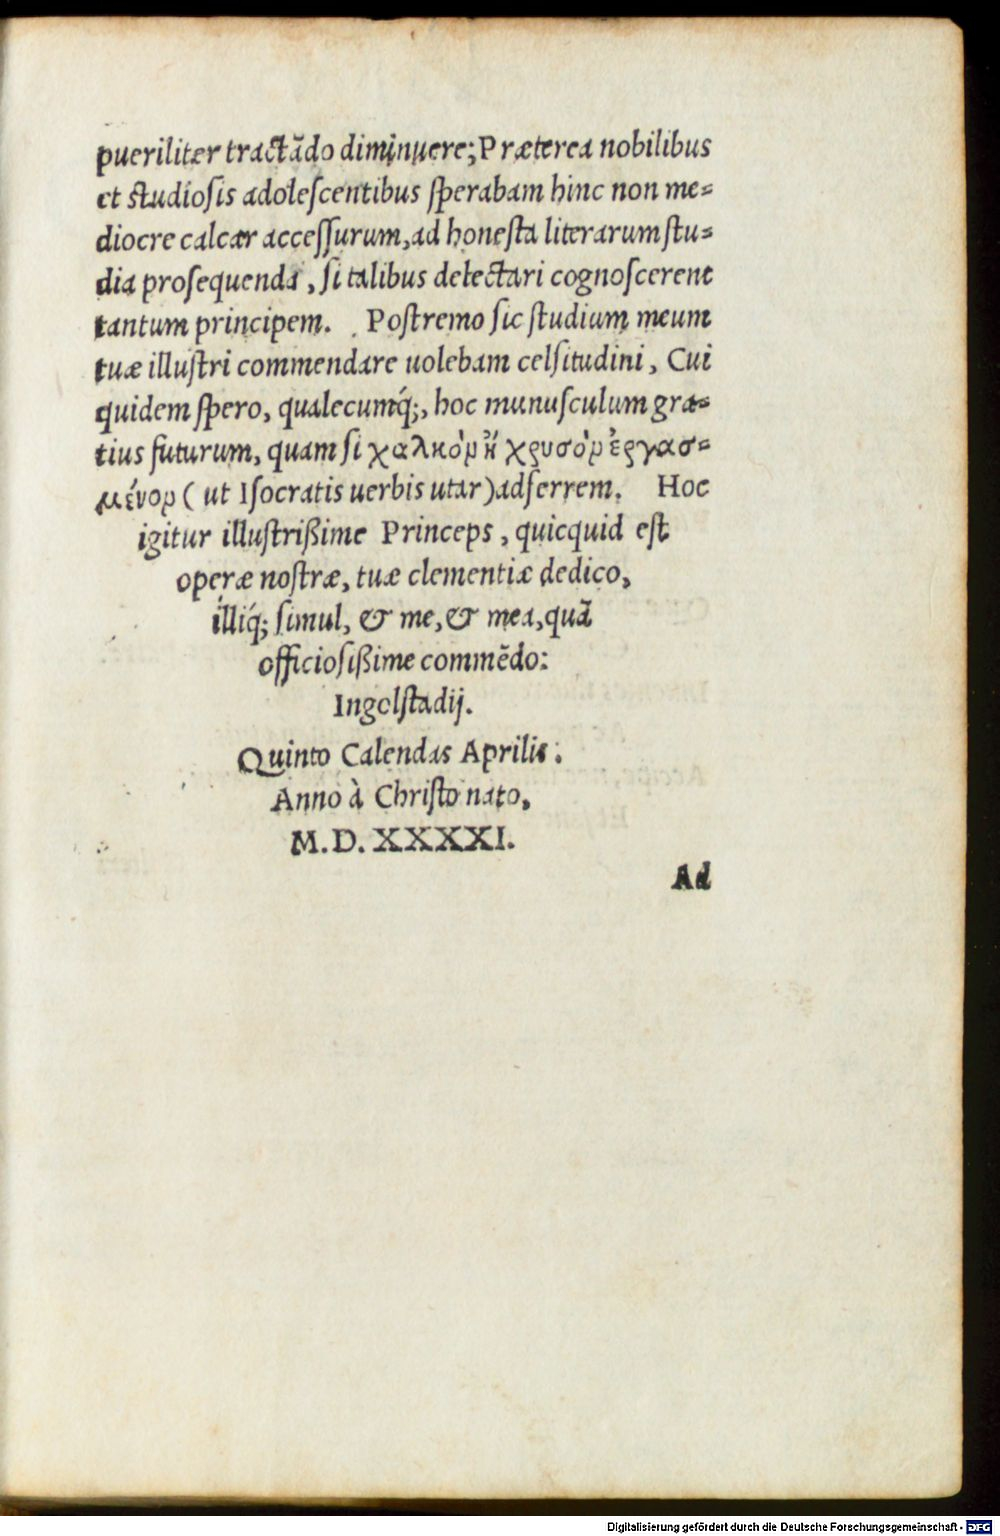 pueriliter tractãdo diminuere; Præterea nobilibus
et studiosis adolescentibus sperabam hinc non me-
diocre calcar accessurum, ad honesta literarum stu-
dia prosequenda, si talibus delectari cognoscerent
tantum principem. Postremo sic studium meum
tuæ illustri commendare uolebam celsitudini, Cui
quidem spero, qualecumq́;, hoc munusculum gra-
tius futurum, quam si χαλκὸν ἢ χρυσὸν ἐργασ-
μένον ( ut Isocratis uerbis utar) adferrem. Hoc
igitur illustrißime Princeps, quicquid est
operæ nostræ, tuæ clementiæ dedico,
illiq́; simul, & me, & mea, quã
officiosißime commẽdo:
Ingolstadij.
Quinto Calendas Aprilis.
Anno à Christo nato,
M.D.XXXXI.
Ad
Digitalisierung gefördert durch die Deutsche Forschungsgemeinschaft - DFG